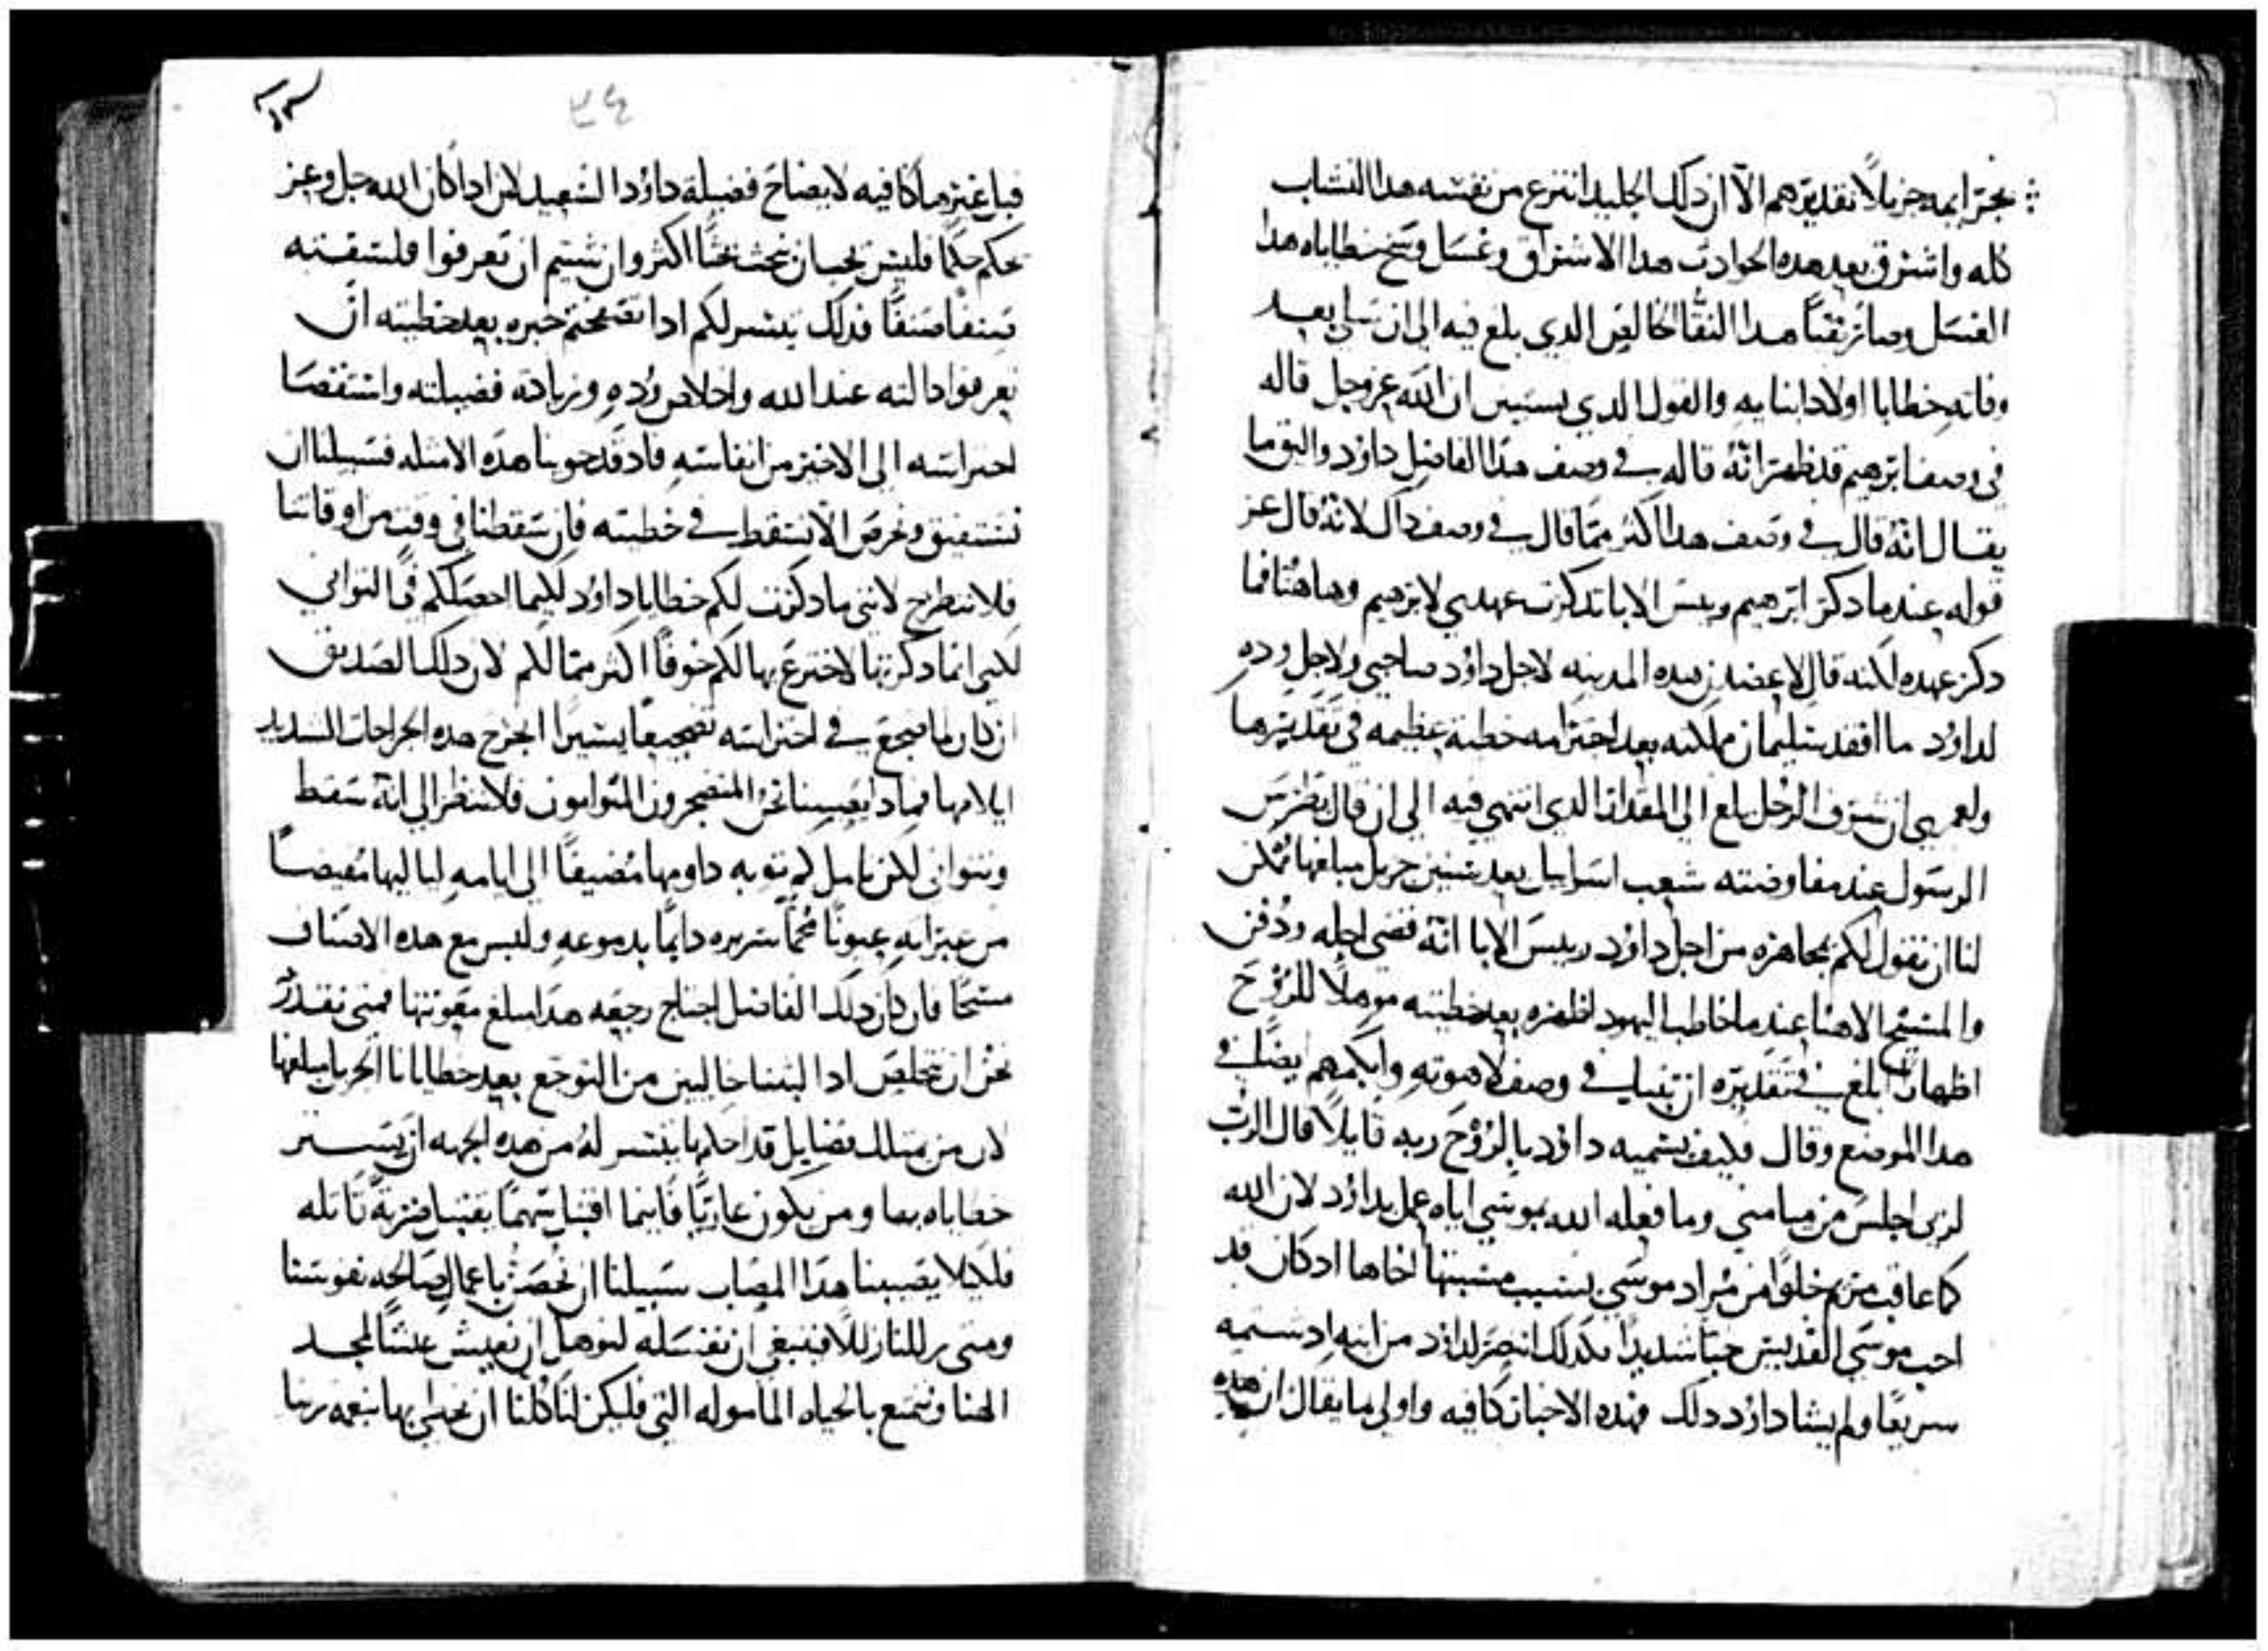 بجرايمه جزيلاً تقديرهم الا ان ذلك الجليد انتزع من نفسه هدا النشاب
كله واشترق بعد هده الحوادت هدا الاشتراق وغسل وسخ خطاياه هدا
الغسل وصار نقياً هدا النقا الخالص الدي بلغ فيه الى ان تسلي بعد
وفاته خطايا اولاد ابنايه والقول الدي يستبين ان الله عز وجل قاله
في وصف ابرهيم قد يظهر انه قاله في وصف هدا الفاضل داؤد واليق ما
يقال انه قال في وصف هدا اكتر مما قال في وصف داك لانه قال عز
قوله عندما دكر ابرهيم وريس الابا تدكرت عهدي لابرهيم وهاهنا فما
دكر عهده لكنه قال لاعضدن هده المدينه لاجل داؤد صاحبي ولاجل وده
لداؤد ما افقد سليمان مملكته بعد اجترامه خطيه عظيمه في تقديرها
ولعمري ان شرف الرجل بلغ الى المقدار الدي انتهى فيه الى ان قال بطرس
الرسول عند مفاوضته شعب اسراييل بعد سنين جزيل مبلغها ممكن
لنا ان نقول لكم مجاهره من اجل داؤد رييس الابا انه قضى اجله ودفن
والمسيح الاهنا عندما خاطب اليهود اظهره بعد خطيته موهلاً للروح
اظهاراً بلغ في تقديره ان تنبا في وصف لاهوته وابكمهم ايضاً في
هدا الموضع وقال فكيف يسميه داؤد بالروح ربه قايلاً قال الرب
لربي اجلس من ميامني وما فعله الله بموسي اياه عمل بداؤد لان الله
كما عاقب مريم خلواً من مراد موسي بسبب مسبتها اخاها اد كان قد
احب موسي القديس حباً شديداً كدلك انتصر لداؤد من ابنه اد شتمه
سريعاً ولم يشا داؤد دلك فهده الاخبار كافيه واولى ما يقال ان هده
٢٤
فباغتزما كافيه لايضاح فضيلة داؤد السعيد لان ادا كان الله جل وعز
يحكم حكماً فليس يجب ان نبحث بحثاً اكثر وان شيتم ان تعرفوا فلسفته
فدلك يتيسر لكم ادا تصفحتم خبره بعد خطيته ان
تعرفوا دالته عند الله واخلاص وده وزيادة فضيلته واستقصا
احتراسه الى الاخير من انفاسه فاد قد حوينا هده الامثله فسبيلنا ان
نستفيق ونحرص الا نسقط في خطيته فان سقطنا في وقت من اوقاتنا
فلا ننطرح لانني ما دكرت لكم خطايا داؤد لكيما احصلكم في التواني
لكني انما دكرتها لاخترع بها لكم خوفاً اكتر مما لكم لان دلك الصديق
ان كان لما ضجع في احتراسه تضجيعاً يسيراً انجرح هده الجراحات الشديد
ايلامها فمادا يصيبنا نحن المتضجرون المتوانون فلا تنظر الى انه سقط
وتتوانى لكن تامل كم توبه داومها مضيفاً الى ايامه لياليها مفيضاً
من عبراته عيوناً محماً سريره دايماً بدموعه ولبس مع هده الاصناف
مسحاً فان كان دلك الفاضل احتاج رجعه هدا مبلغ معونتها فمتى نقدر
نحن ان نتخلص ادا لبثنا خاليين من التوجع بعد خطايانا الجزيل مبلغها
لان من يمتلك فضايل قد احكمها يتيسر له من هده الجهه ان يستر
خطاياه بها ومن يكون عارياً فاينما اقتبل سهماً يقتبل ضربة قاتله
فلكيلا يصيبنا هدا المصاب سبيلنا ان نحصن باعمال صالحه نفوسنا
ومتى لنا زللاً فينبغي ان نغسله لنوهل ان نعيش عيشاً لمجد
الهنا ونتمتع بالحياه الماموله التي فليكن لنا كلنا ان نحظى بها بنعمه ربنا